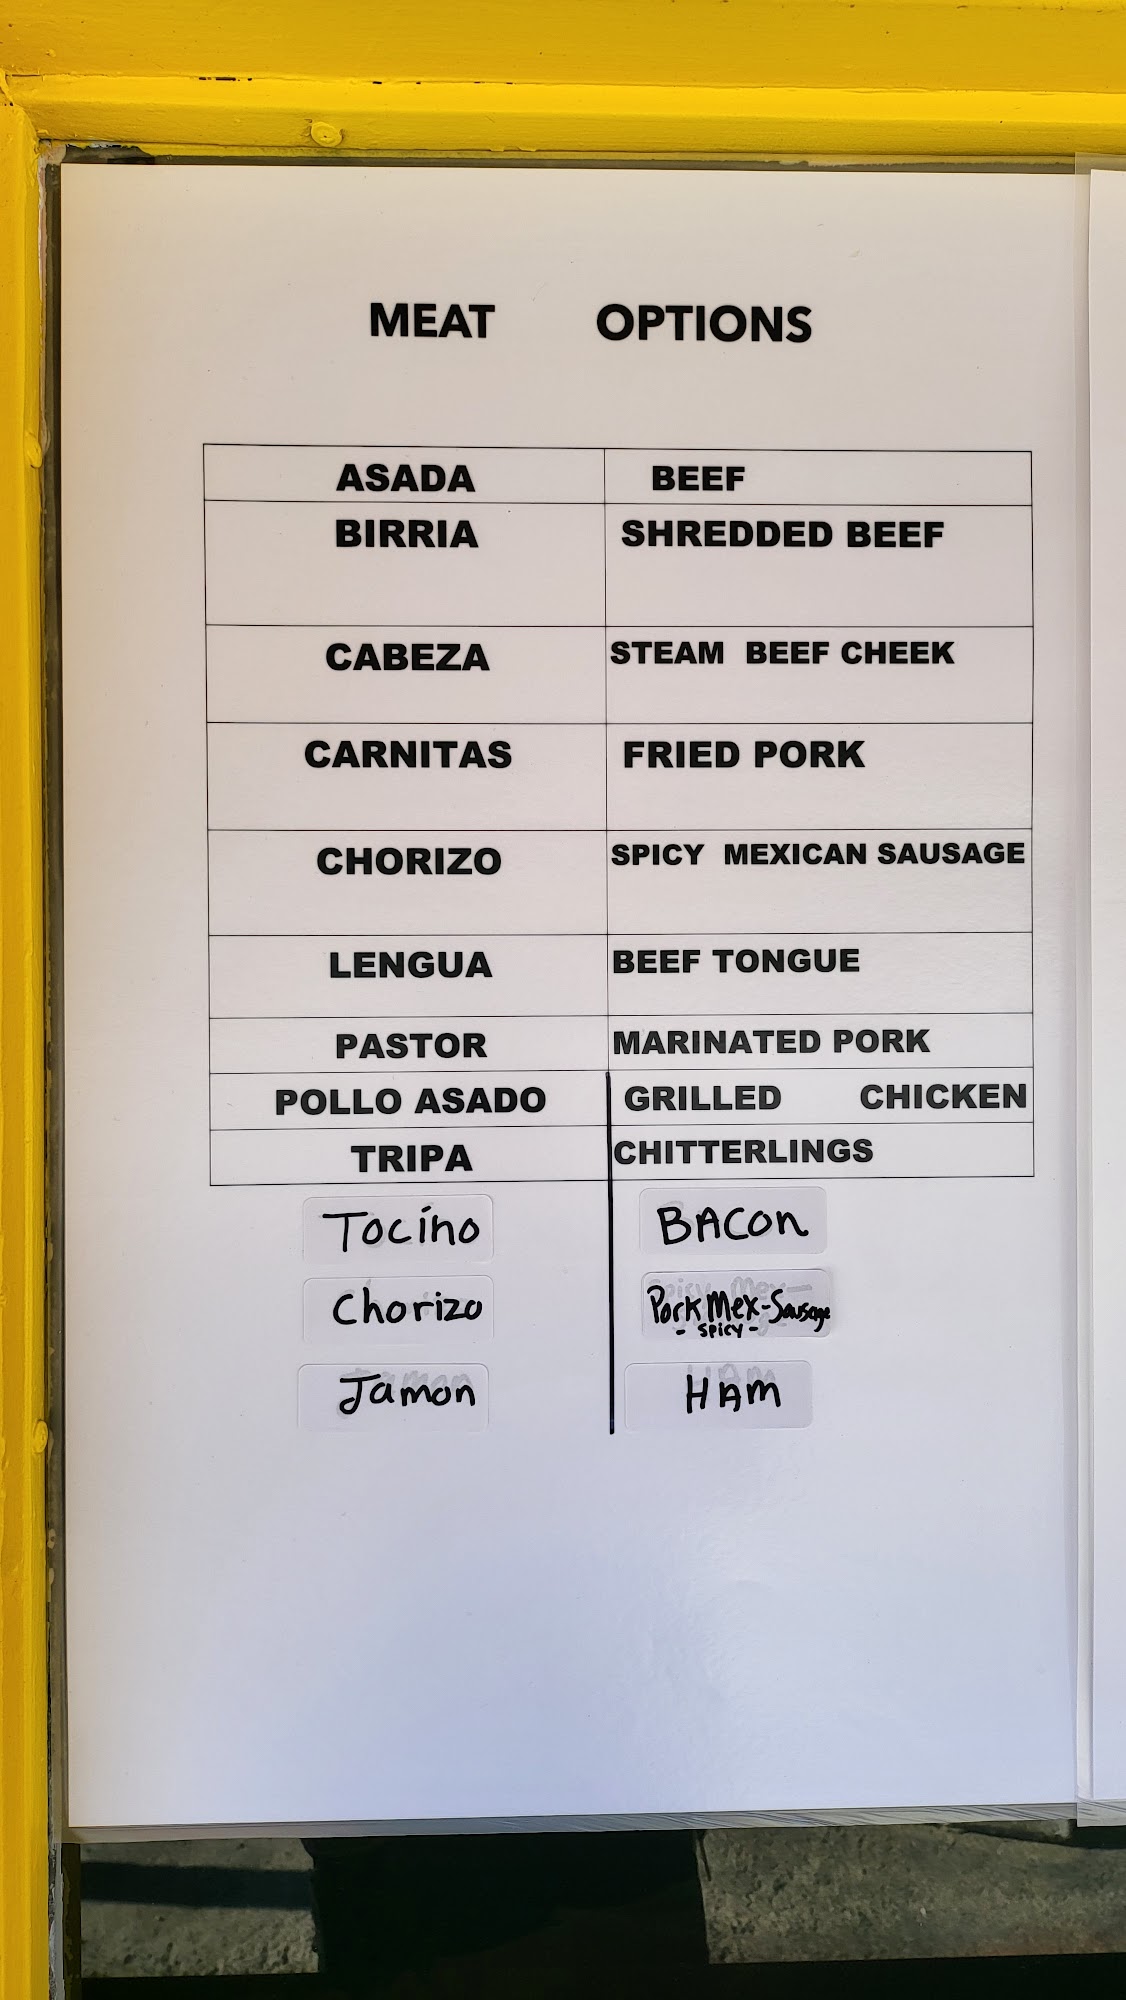 MEAT OPTIONS
ASADA BEEF
BIRRIA SHREDDED BEEF
CABEZA STEAM BEEF CHEEK
CARNITAS FRIED PORK
CHORIZO SPICY MEXICAN SAUSAGE
LENGUA BEEF TONGUE
PASTOR MARINATED PORK
POLLO ASADO GRILLED CHICKEN
TRIPA CHITTERLINGS
Tocino BACon
Chorizo Pork Mex-Sausage
- SPICY -
Jamon HAm